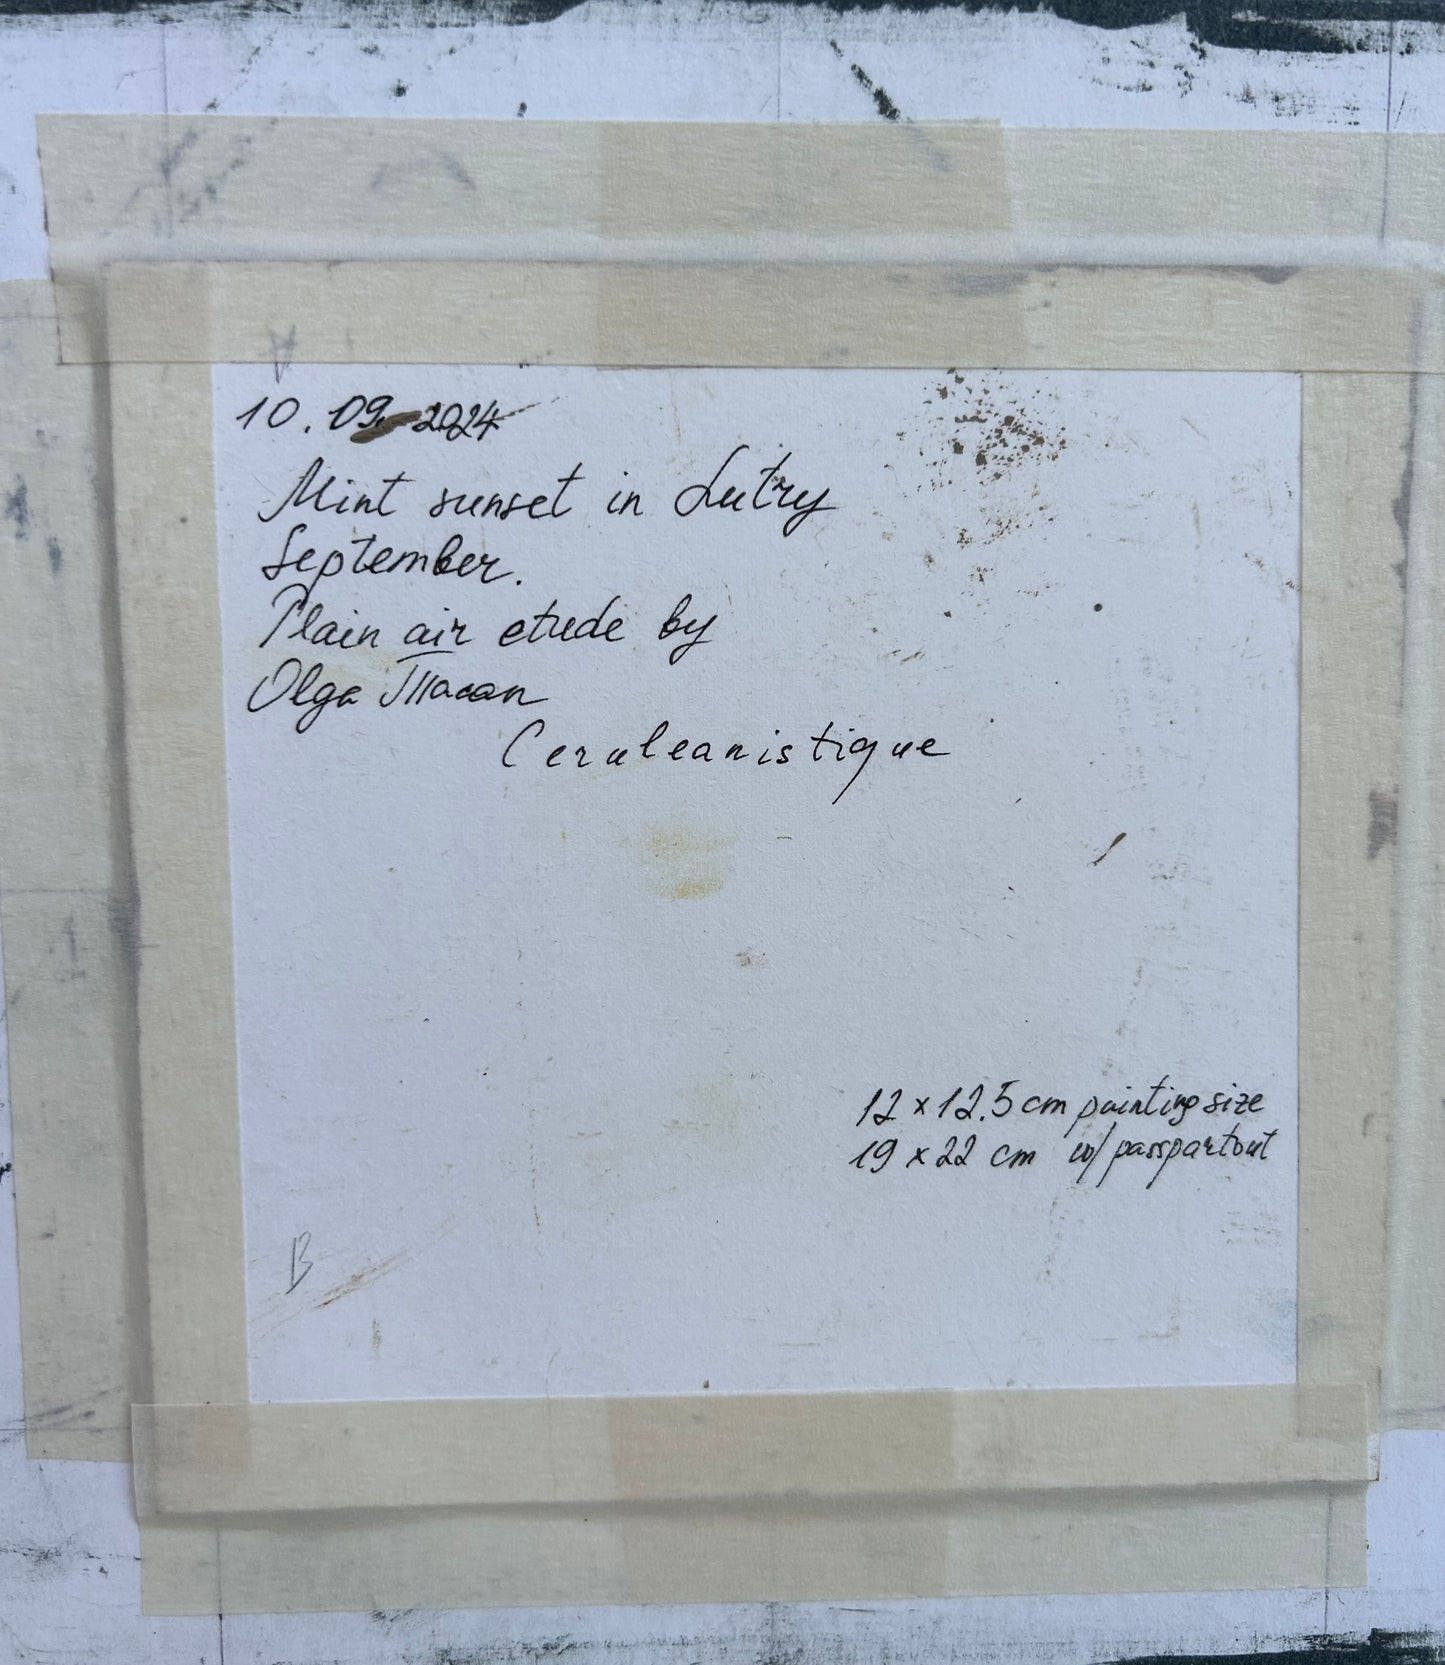 A
10.09.2024
Mint sunset in Lutry
September.
Plain air etude by
Olga
Ceruleanistique
12 x 12.5 cm painting size
19 x 22 cm w/ passpartout
B